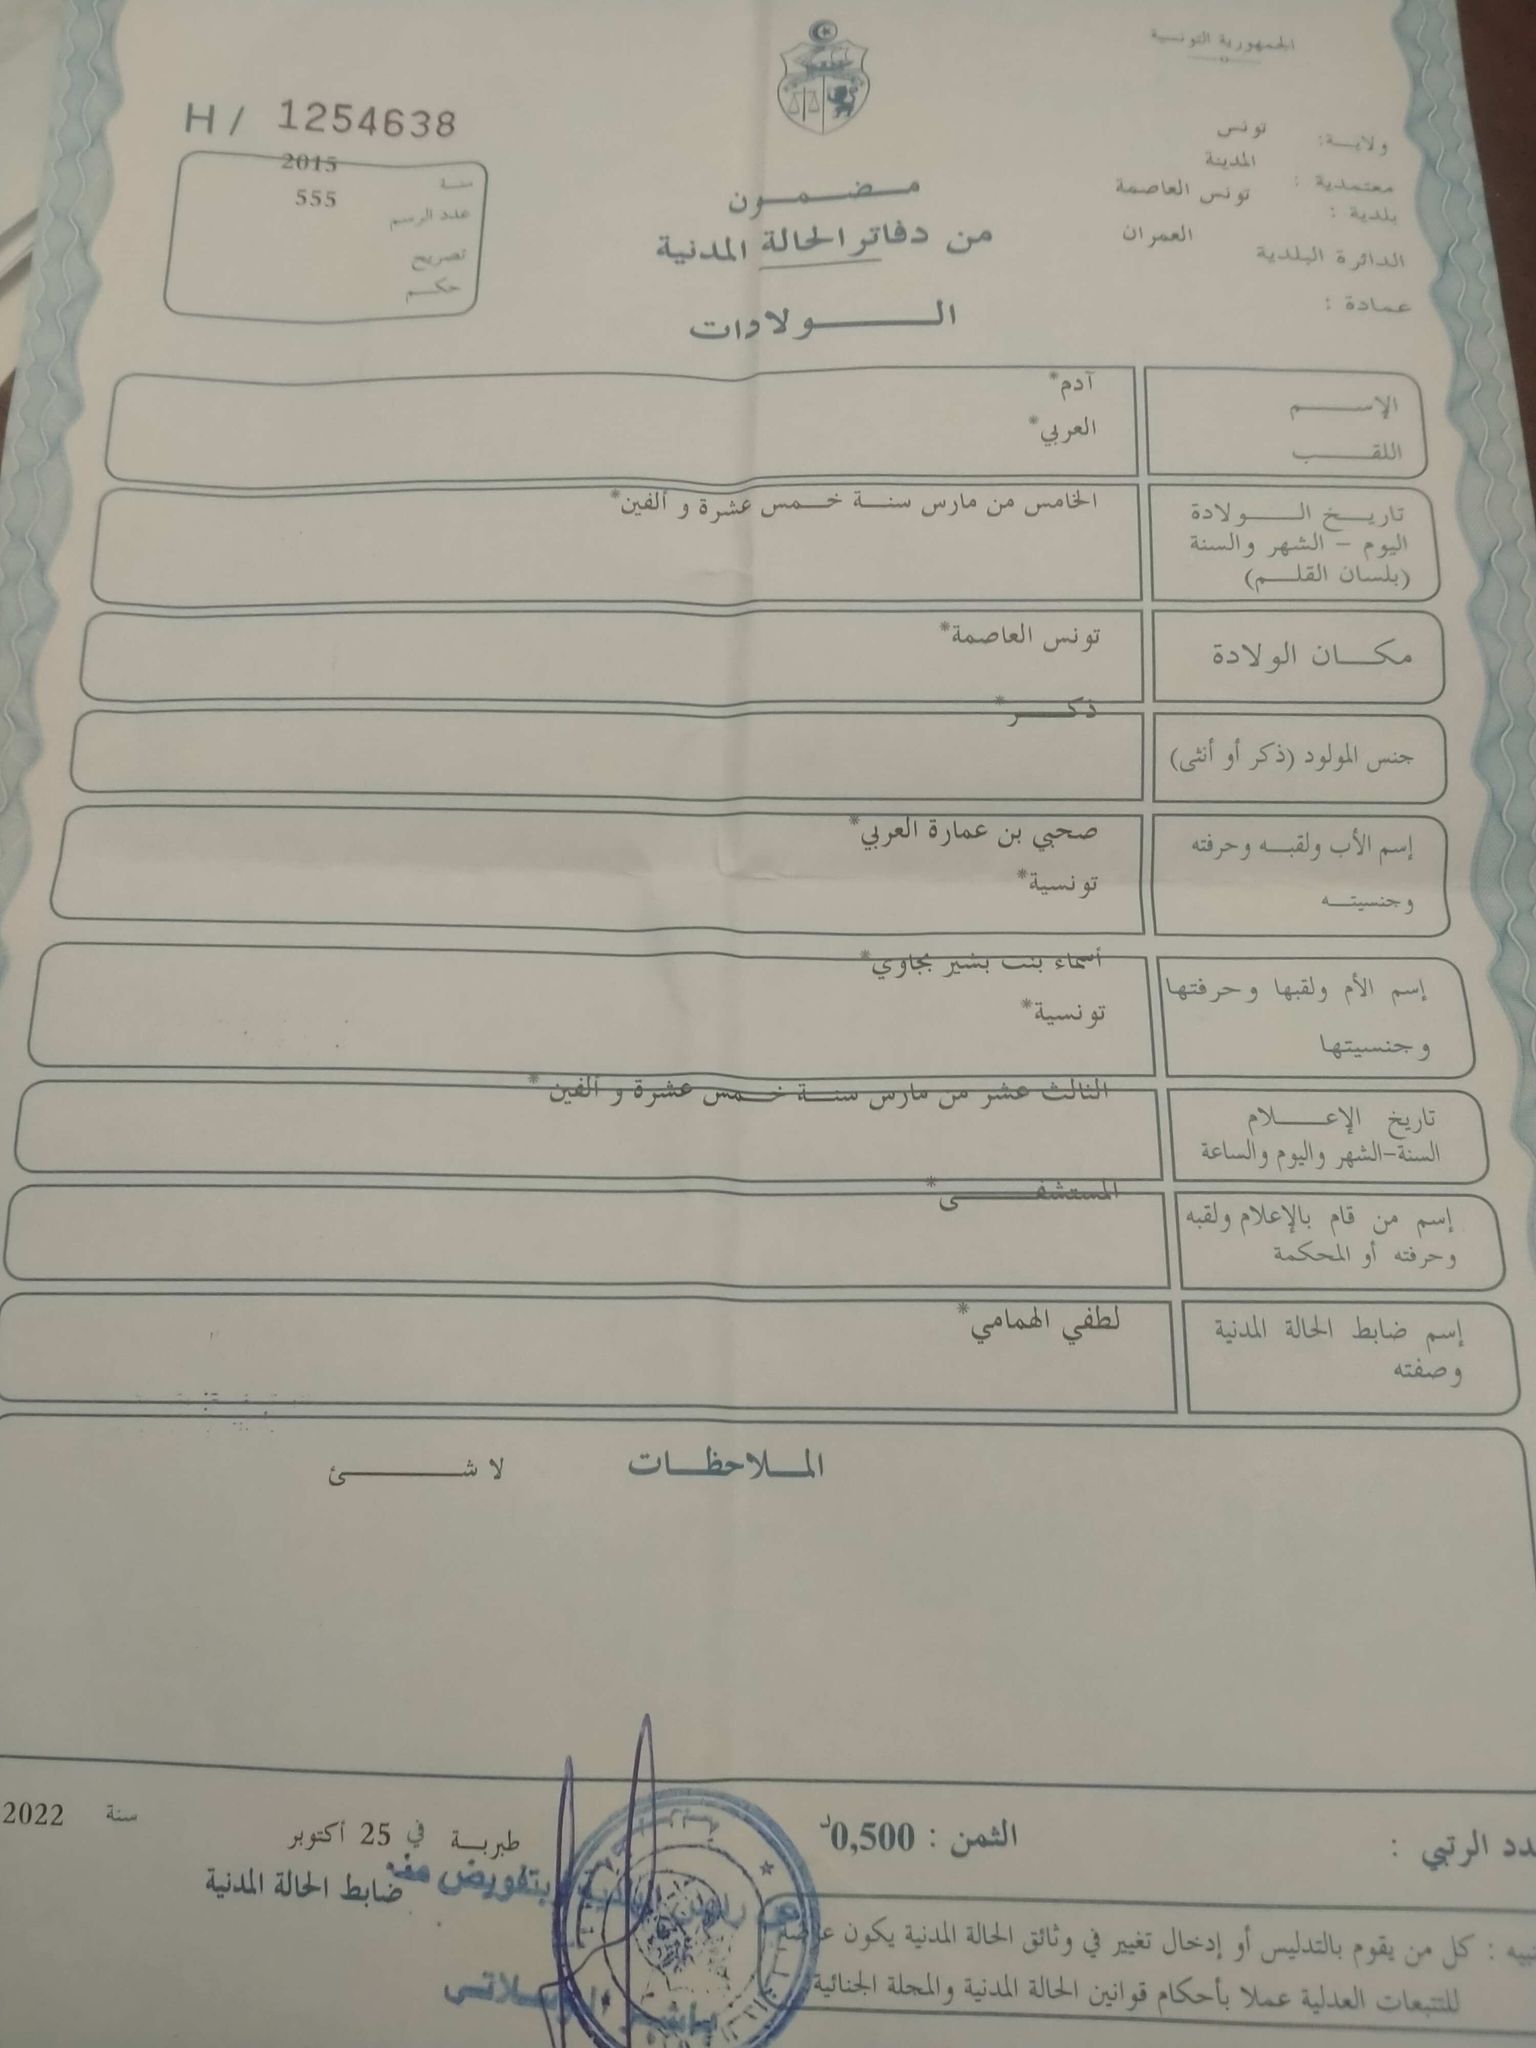 الجمهورية التونسية
ولاية: تونس
معتمدية : المدينة
بلدية : تونس العاصمة
الدائرة البلدية العمران
عمادة :
H / 1254638
سنة 2015
عدد الرسم 555
تصريح
حكم
مضمون
من دفاتر الحالة المدنية
الولادات
الإسم آدم*
اللقب العربي*
تاريخ الولادة الخامس من مارس سنة خمس عشرة و ألفين*
اليوم - الشهر والسنة
(بلسان القلم)
مكان الولادة تونس العاصمة*
جنس المولود (ذكر أو أنثى) ذكر*
إسم الأب ولقبه وحرفته صحبي بن عمارة العربي*
وجنسيته تونسية*
إسم الأم ولقبها وحرفتها أسماء بنت بشير بجاوي*
وجنسيتها تونسية*
تاريخ الإعلام الثالث عشر من مارس سنة خمس عشرة و ألفين*
السنة-الشهر واليوم والساعة
إسم من قام بالإعلام ولقبه المستشفى*
وحرفته أو المحكمة
إسم ضابط الحالة المدنية لطفي الهمامي*
وصفته
الملاحظات لا شئ
الرتبي : الثمن : 0,500د
طبربة في 25 أكتوبر سنة 2022
ضابط الحالة المدنية
بتفويض منه
: كل من يقوم بالتدليس أو إدخال تغيير في وثائق الحالة المدنية يكون عرضة
للتتبعات العدلية عملا بأحكام قوانين الحالة المدنية والمجلة الجنائية